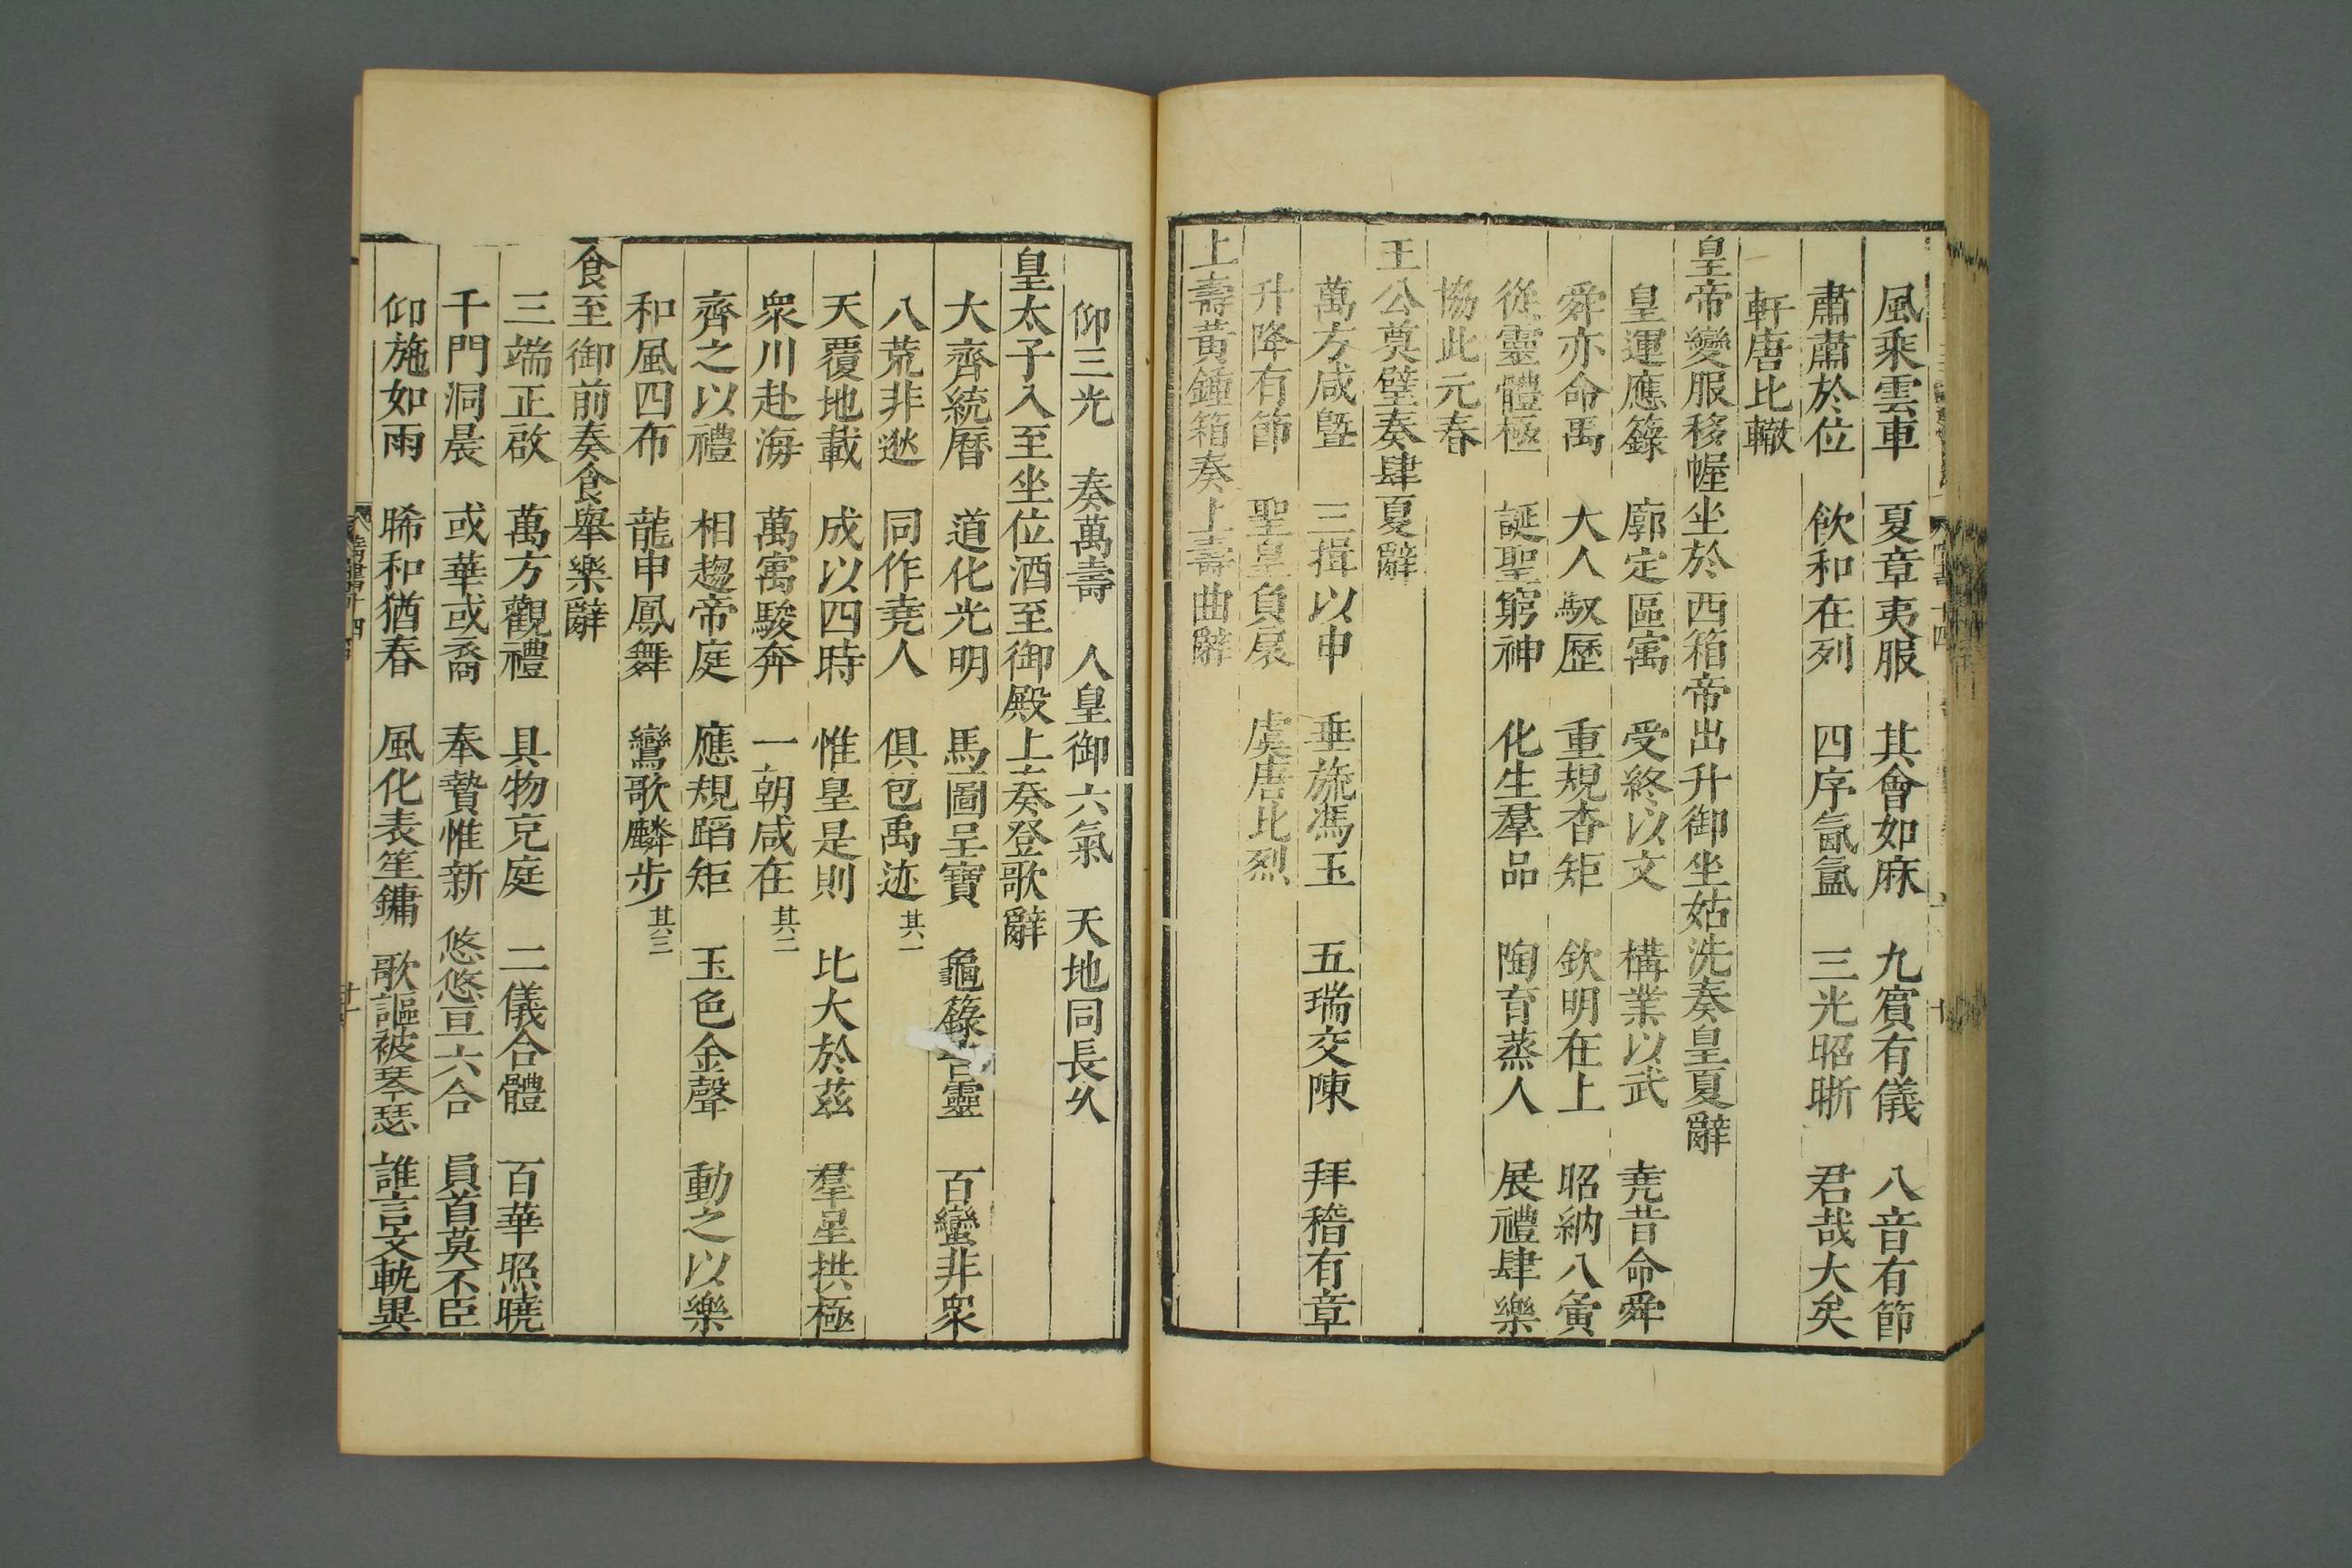 風乘雲車　夏章夷服　其會如麻　九賓有儀　八音有節
肅肅於位　飮和在列　四序氤氳　三光昭晣　君哉大矣
軒唐比轍
皇帝變服移幄坐於西箱帝出升御坐姑洗奏皇夏辭
皇運應籙　廓定區寓　受終以文　構業以武　堯昔命舜
舜亦命禹　大人馭歷　重規沓矩　欽明在上　昭納八夤
從靈體極　誕聖窮神　化生羣品　陶育蒸人　展禮肆樂
協此元春
王公奠璧奏肆夏辭
萬方咸曁　三揖以申　垂旒馮玉　五瑞交陳　拜稽有章
升降有節　聖皇負扆　虞唐比烈
上壽黃鍾箱奏上壽曲辭
仰三光　奏萬壽　人皇御六氣　天地同長久
皇太子入至坐位酒至御殿上奏登歌辭
大齊統曆　道化光明　馬圖呈寶　龜籙告靈　百蠻非衆
八荒非逖　同作堯人　俱包禹迹其一
天覆地載　成以四時　惟皇是則　比大於茲　羣星拱極
衆川赴海　萬寓駿奔　一朝咸在其二
齊之以禮　相趨帝庭　應規蹈矩　玉色金聲　動之以樂
和風四布　龍申鳳舞　鸞歌麟步其三
食至御前奏食舉樂辭
三端正啟　萬方觀禮　具物充庭　二儀合體　百華照曉
千門洞晨　或華或裔　奉贄惟新　悠悠亘六合　員首莫不臣
仰施如雨　晞和猶春　風化表笙鏞　歌謳被琴瑟　誰言文軌異